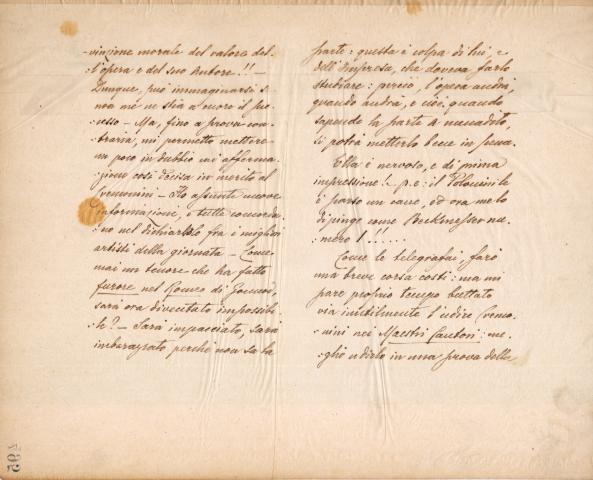 -vinzione morale del valore del-
-l'opera e del suo Autore!! -
Dunque, può immaginarsi s
non mi ne stia a cuore il pro
cesso - Ma, fino a prova con-
-traria, mi permetto mettere
un poco in dubbio
così decisa in merito al
Ho assunte nuove
informazioni, e tutte concorda-
-no nel dichiararlo fra i migliori
artisti della giornata - Come
mai un tenore che ha fatto
furore nel Romeo di Gounod,
sarà ora diventato impossibi-
-le? - Sarà impacciato, sarà
imbarazzato perchè non sa la
parte: questa è colpa di lui, e
dell'Impresa, che doveva farlo
studiare: perciò, l'opera andrà,
quando andrà, e cioè, quando
sapendo la parte a menadito,
si potrà metterlo bene in scena.
Ella è nervoso, e di prima
impressione! - p.e: il
è parso un cane, ed ora me lo
dipinge come Beckmesser nu-
-mero 1!!....
Come le telegrafai, farò
una breve corsa costì: ma mi
pare proprio tempo buttato
via inutilmente l'udire
nei Maestri Cantori: me-
-glio udirlo in una prova della
295